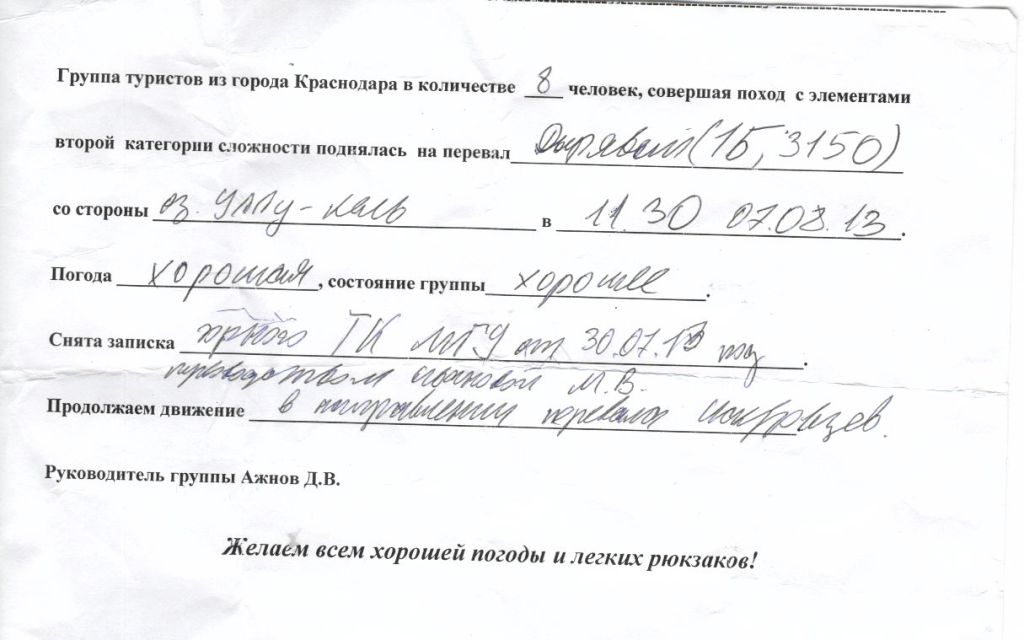 Группа туристов из города Краснодара в количестве 8 человек, совершая поход с элементами
второй категории сложности поднялась на перевал Дырявый (1Б, 3150)
со стороны оз. Уллу-кель в 11.30 07.08.13.
Погода хорошая, состояние группы хорошее.
Снята записка горного ТК МГУ от 30.07.13 под.
руководством М.В.
Продолжаем движение в направлении перевала
Руководитель группы Ажнов Д.В.
Желаем всем хорошей погоды и легких рюкзаков!